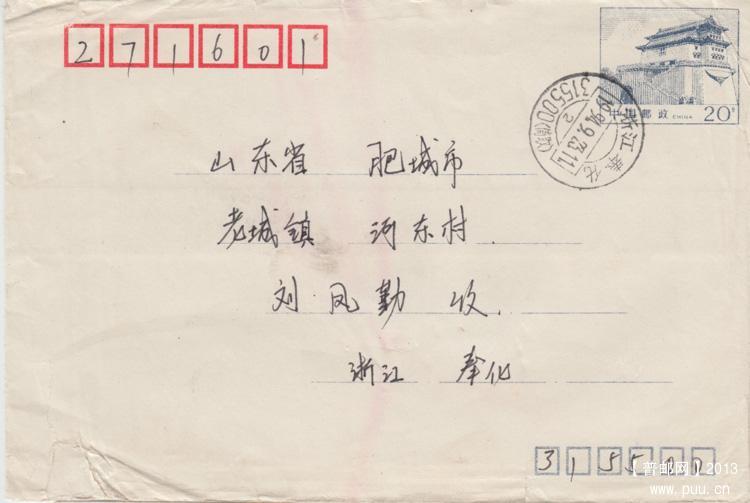 271601
中国邮政 CHINA 20分
浙江 奉化
1994.9.23.11
315500
2
山东省 肥城市
老城镇 河东村
刘凤勤 收
浙江 奉化
315500
【普邮网】2013
www.puu.cn